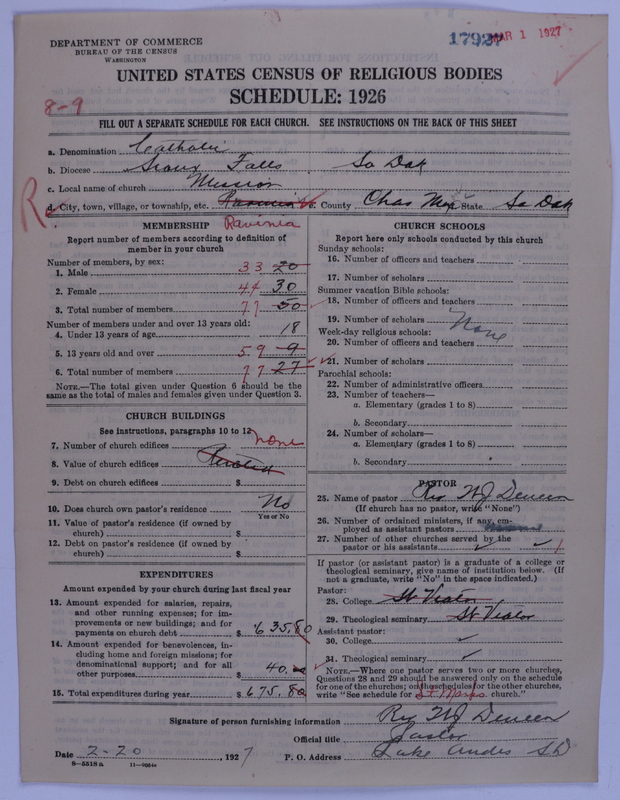 DEPARTMENT OF COMMERCE
BUREAU OF THE CENSUS
WASHINGTON
17927 MAR 1 1927
UNITED STATES CENSUS OF RELIGIOUS BODIES
SCHEDULE: 1926
8-9
FILL OUT A SEPARATE SCHEDULE FOR EACH CHURCH. SEE INSTRUCTIONS ON THE BACK OF THIS SHEET
a. Denomination Catholic
b. Diocese Sioux Falls So Dak
c. Local name of church Mission
R
d. City, town, village, or township, etc. Ravinia e. County Chas Mix State So Dak
Ravinia
MEMBERSHIP
Report number of members according to definition of
member in your church
Number of members, by sex:
1. Male 33 20
2. Female 44 30
3. Total number of members 77 50
Number of members under and over 13 years old:
4. Under 13 years of age 18
5. 13 years old and over 59 9
6. Total number of members 77 27
NOTE.—The total given under Question 6 should be the
same as the total of males and females given under Question 3.
CHURCH BUILDINGS
See instructions, paragraphs 10 to 12
7. Number of church edifices none
8. Value of church edifices $
9. Debt on church edifices $
10. Does church own pastor's residence No
Yes or No
11. Value of pastor's residence (if owned by
church) $
12. Debt on pastor's residence (if owned by
church) $
EXPENDITURES
Amount expended by your church during last fiscal year
13. Amount expended for salaries, repairs,
and other running expenses; for im-
provements or new buildings; and for
payments on church debt $ 635.80
14. Amount expended for benevolences, in-
cluding home and foreign missions; for
denominational support; and for all
other purposes $ 40.00
15. Total expenditures during year $ 675.80
CHURCH SCHOOLS
Report here only schools conducted by this church
Sunday schools:
16. Number of officers and teachers
17. Number of scholars
Summer vacation Bible schools:
18. Number of officers and teachers
19. Number of scholars None
Week-day religious schools:
20. Number of officers and teachers
21. Number of scholars
Parochial schools:
22. Number of administrative officers
23. Number of teachers—
a. Elementary (grades 1 to 8)
b. Secondary
24. Number of scholars—
a. Elementary (grades 1 to 8)
b. Secondary
PASTOR
25. Name of pastor Rev W J
(If church has no pastor, write "None")
26. Number of ordained ministers, if any, em-
ployed as assistant pastors
27. Number of other churches served by the
pastor or his assistants 1
If pastor (or assistant pastor) is a graduate of a college or
theological seminary, give name of institution below. (If
not a graduate, write "No" in the space indicated.)
Pastor:
28. College St Viator
29. Theological seminary St Viator
Assistant pastor:
30. College
31. Theological seminary
NOTE.—Where one pastor serves two or more churches,
Questions 28 and 29 should be answered only on the schedule
for one of the churches; on the schedules for the other churches,
write "See schedule for St Marks church."
Signature of person furnishing information Rev W J
Official title Pastor
Date 2-20, 1927 P. O. Address Lake Andes S D
8—5518 a 11—9054